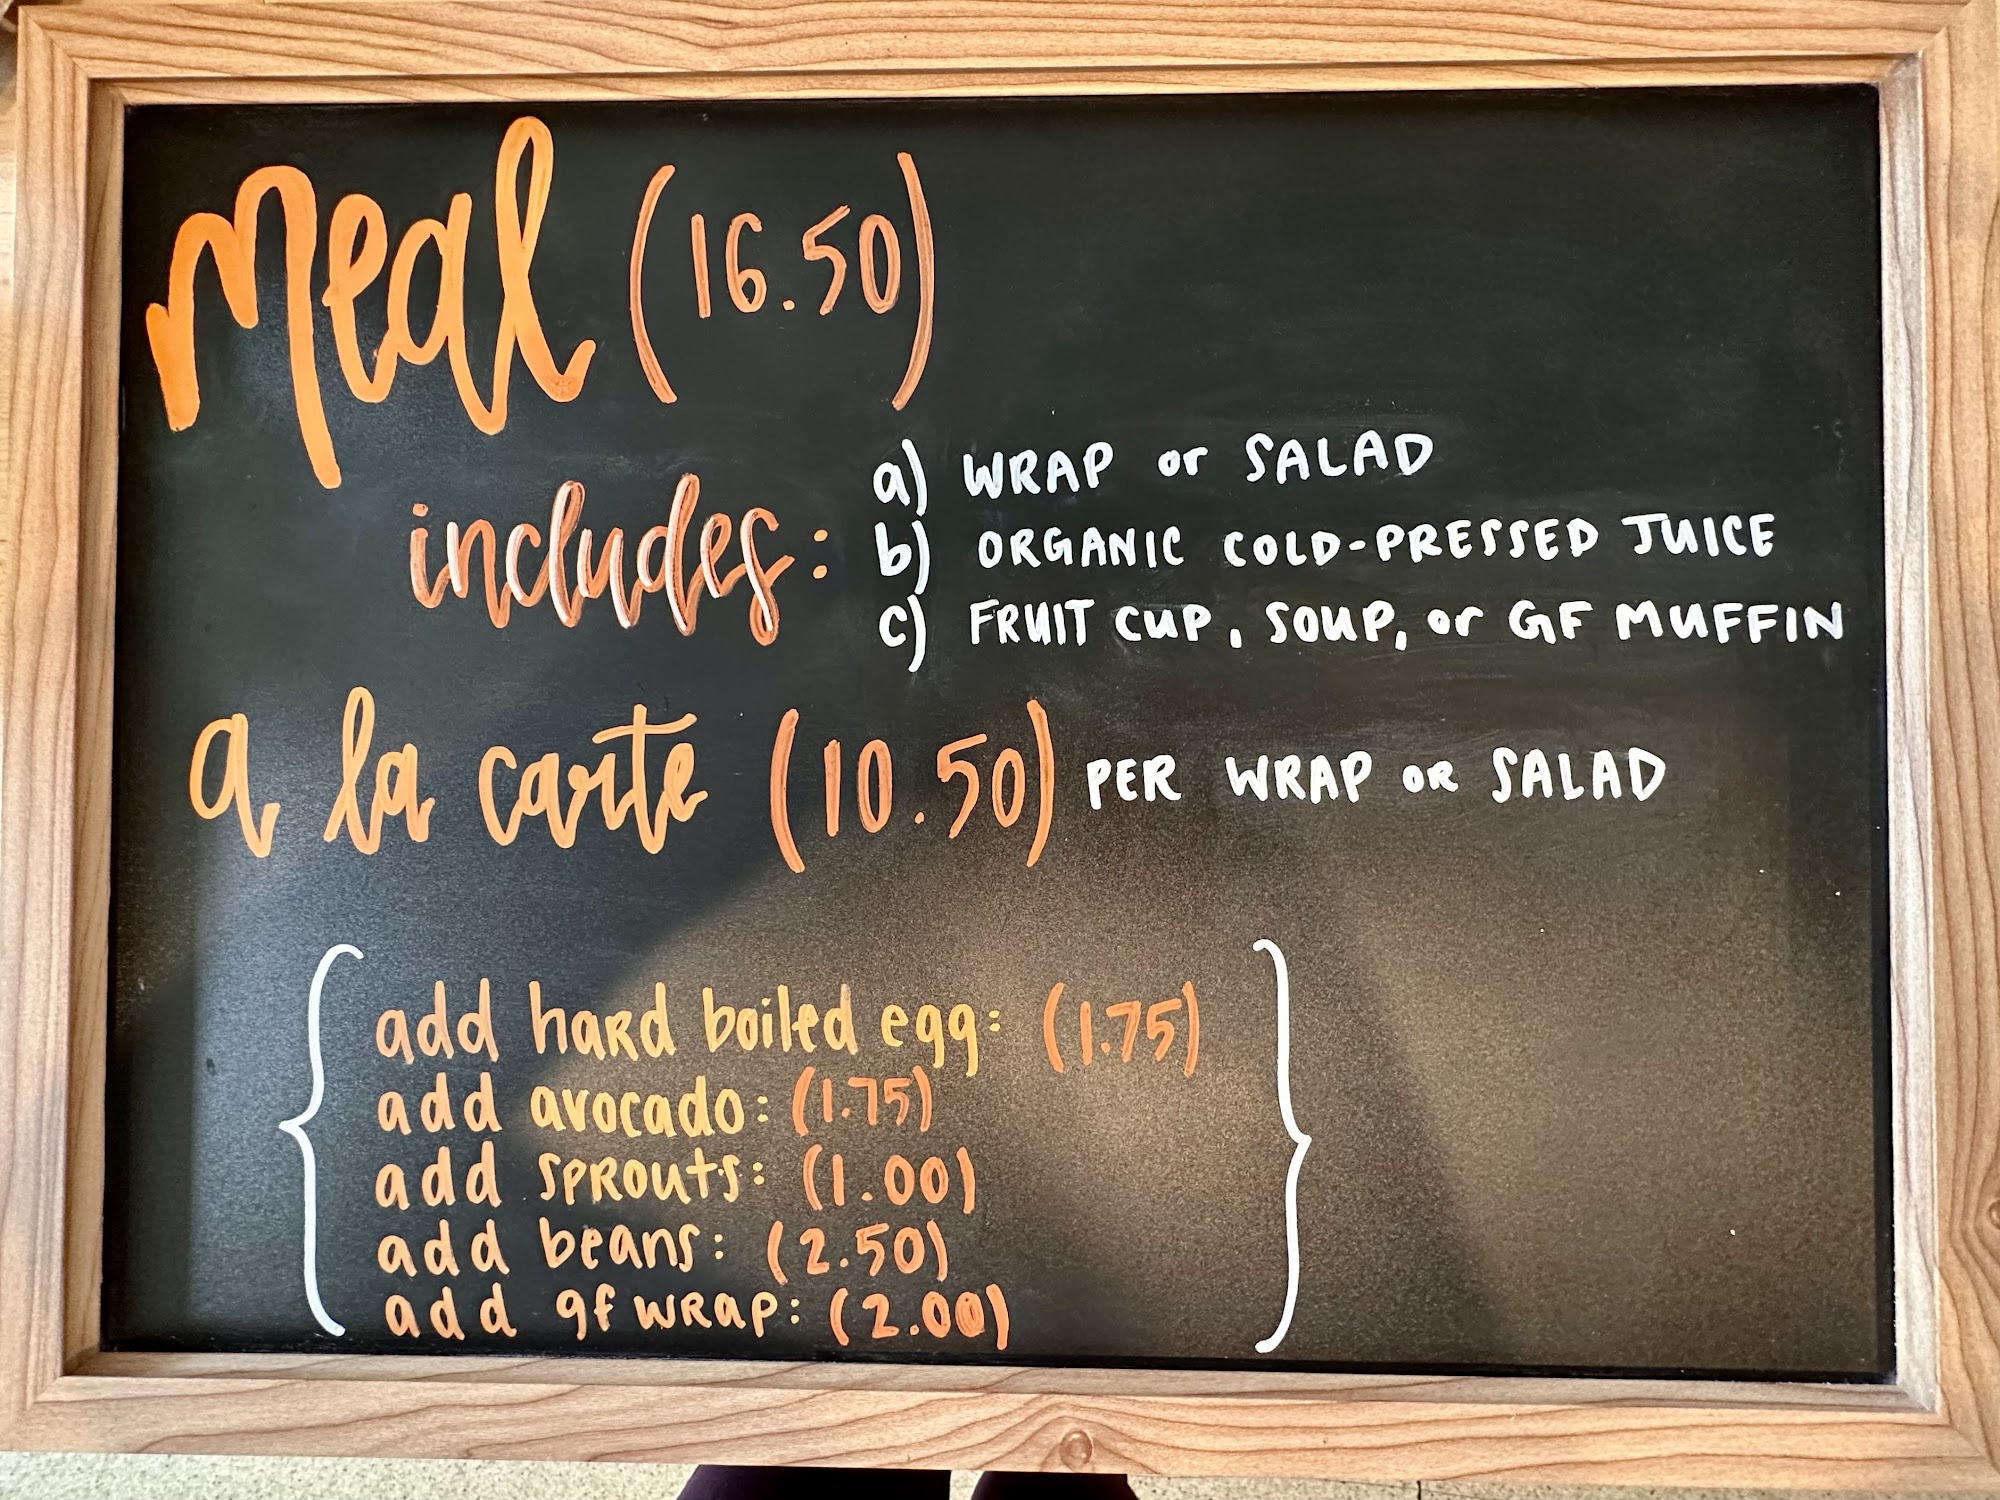 meal (16.50)
includes:
a) WRAP or SALAD
b) ORGANIC COLD-PRESSED JUICE
c) FRUIT CUP, SOUP, or GF MUFFIN
a la carte (10.50) PER WRAP OR SALAD
add hard boiled egg: (1.75)
add avocado: (1.75)
add sprouts: (1.00)
add beans: (2.50)
add gf wrap: (2.00)